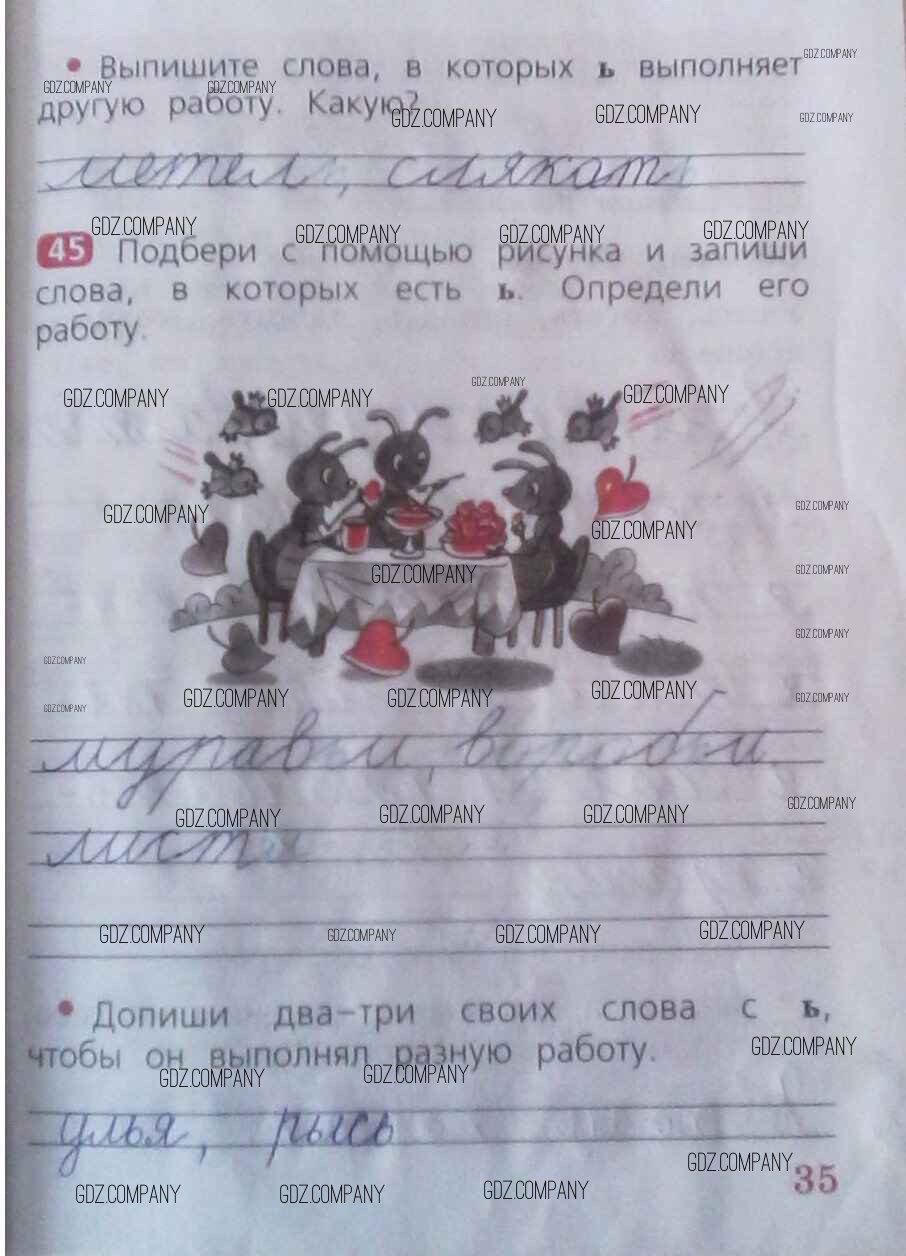 • Выпишите слова, в которых ь выполняет
другую работу. Какую?
метель, слякоть
45 Подбери с помощью рисунка и запиши
слова, в которых есть ь. Определи его
работу.
муравьи, воробьи
листья
• Допиши два-три своих слова с ь,
чтобы он выполнял разную работу.
улья, рысь
35
GDZ.COMPANY